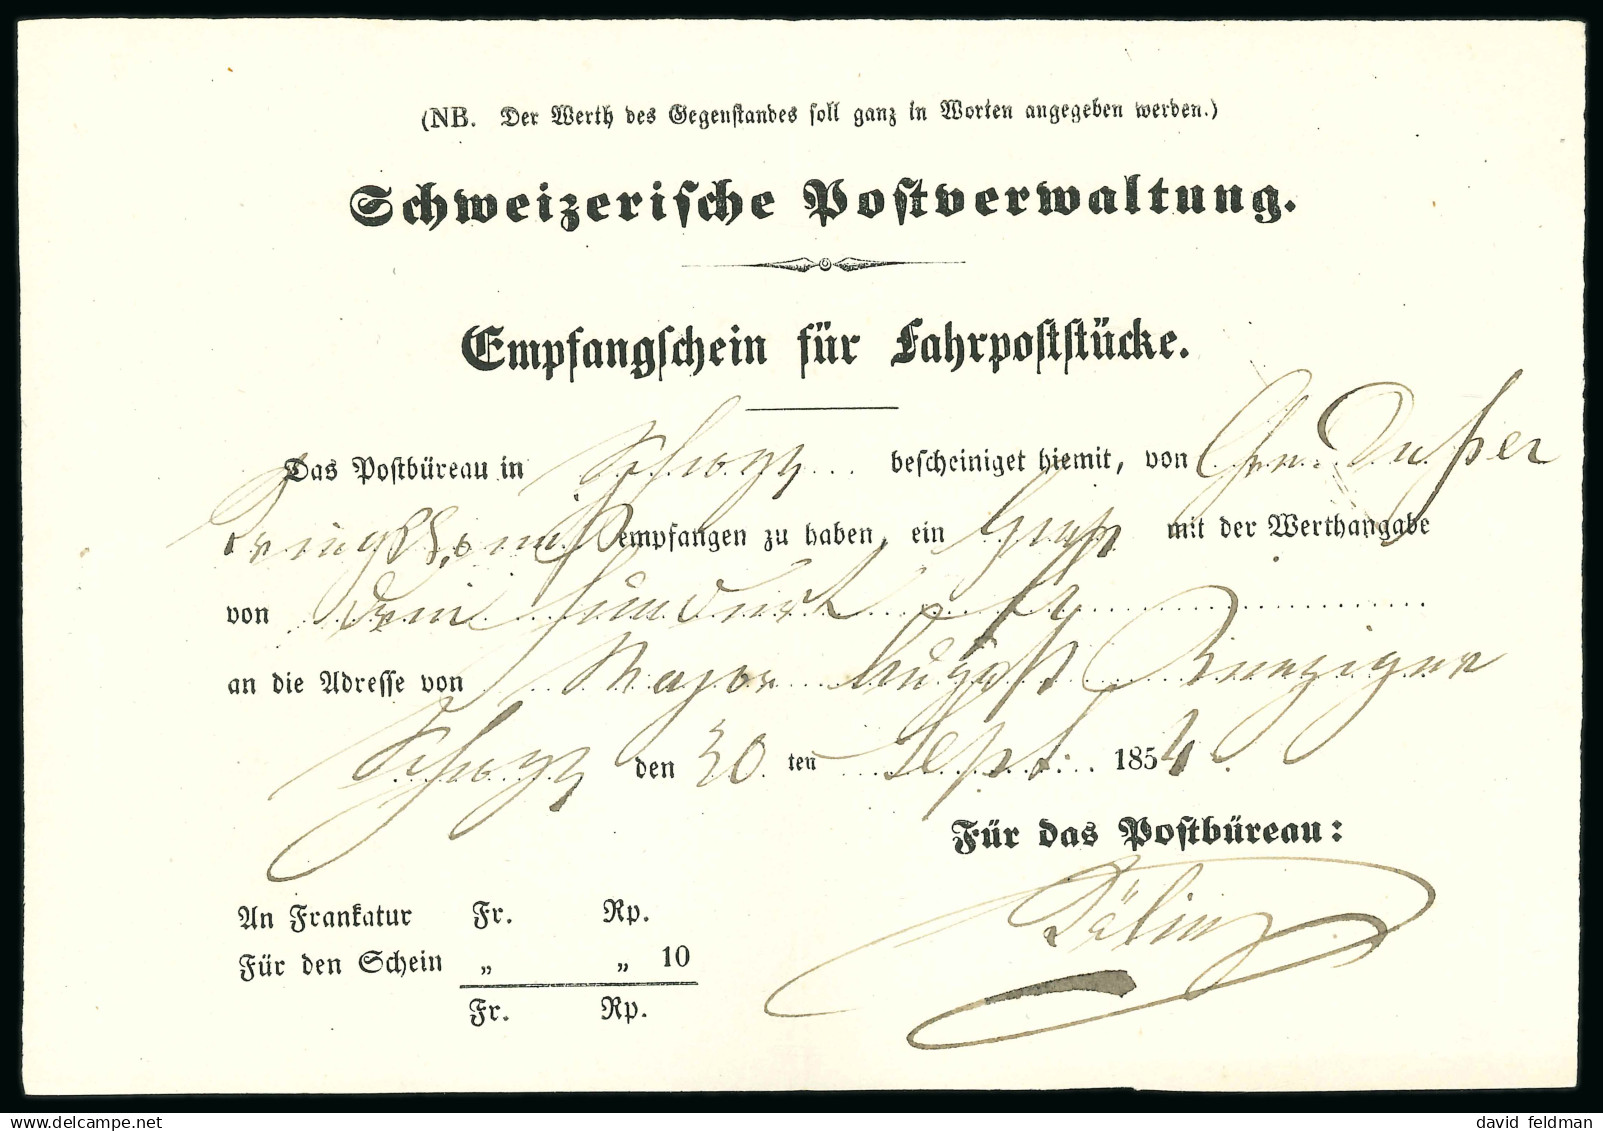 (NB. Der Werth des Gegenstandes soll ganz in Worten angegeben werden.)
Schweizerische Postverwaltung.
Empfangschein für Fahrpoststücke.
Das Postbüreau in Schwyz bescheiniget hiemit, von Hrn.
empfangen zu haben, ein Grp mit der Werthangabe
von drei hundert
an die Adresse von Major August Benziger
Schwyz den 30 ten Sept. 1854.
Für das Postbüreau:
An Frankatur Fr. Rp.
Für den Schein „ „ 10
Fr. Rp.
david feldman